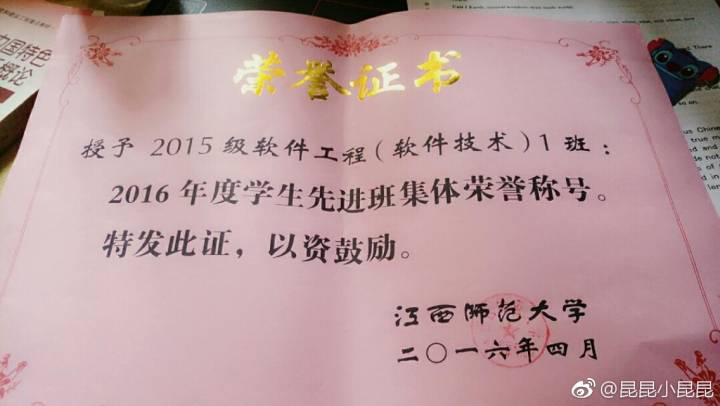 荣誉证书
授予 2015级软件工程(软件技术)1班：
2016年度学生先进班集体荣誉称号。
特发此证，以资鼓励。
江西师范大学
二〇一六年四月
中国特色
概论
@昆昆小昆昆